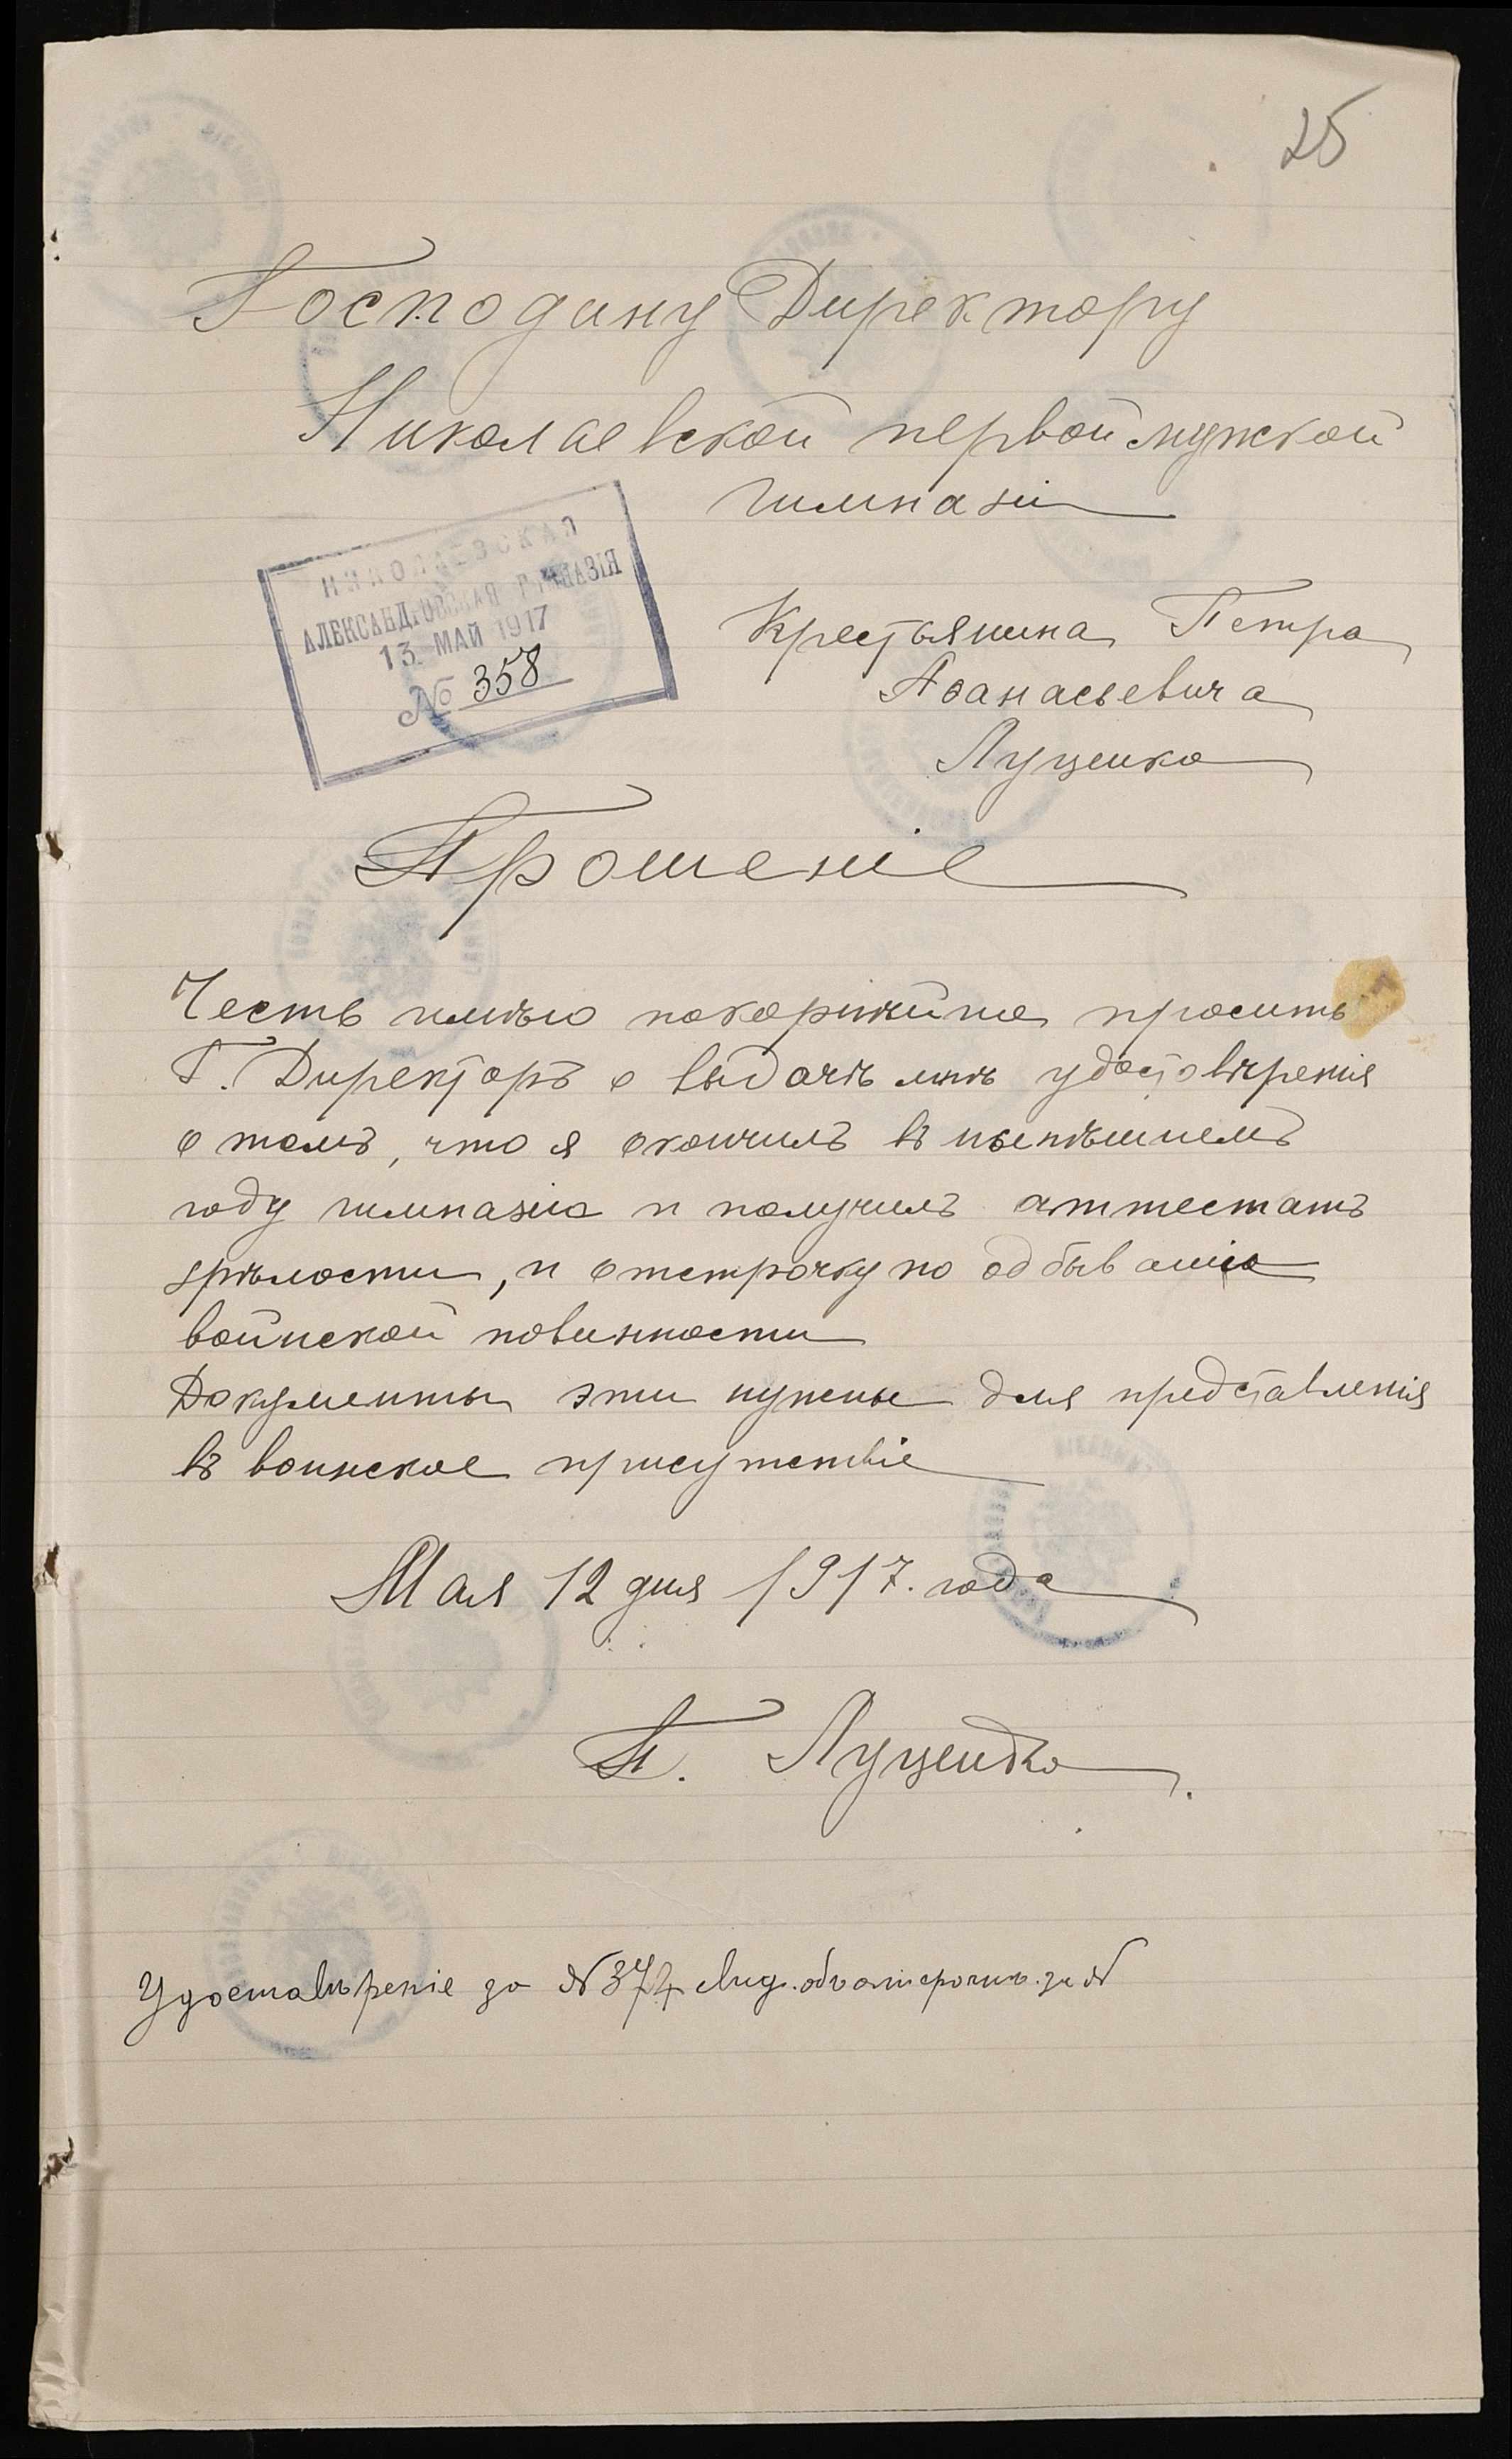 25
Господину Директору
Николаевской первой мужской
гимназіи
НИКОЛАЕВСКАЯ
АЛЕКСАНДРОВСКАЯ ГИМНАЗІЯ
13 МАЙ 1917
№ 358
Крестьянина Петра
Аѳанасьевича
Луценко
Прошеніе
Честь имѣю покорнѣйше просить
Г. Директоръ о выдачѣ мнѣ удостовѣренія
о томъ, что я окончилъ въ нынѣшнемъ
году гимназію и получилъ аттестатъ
зрѣлости, и отстрочку по одбыванію
воинской повинности
Документы эти нужны для представленія
въ воинское присутствіе
Мая 12 дня 1917. года
П. Луценко.
Удостовѣреніе за № 374 за №